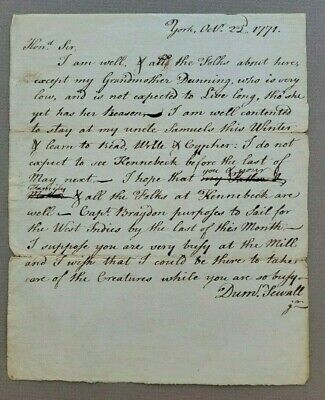 York, Oct. 22d. 1771.
Hond. Sir,
I am well, & all the Folks about here,
except my Grandmother Dunning, who is very
low, and is not expected to Live long, tho she
yet has her Reason — I am well contented
to stay at my uncle Samuels this Winter
& learn to Read, Write & Cypher: I do not
expect to see Kennebeck before the last of
May next. I hope that you & your my Father &
Family Mother & all the Folks at Kennebeck are
well — Capt. Bragdon purposes to Sail for
the West Indies by the last of this Month.
I suppose you are very busy at the Mill
and I wish that I could be there to take
care of the Creatures while you are so busy.
Dumr. Sewall
jr.